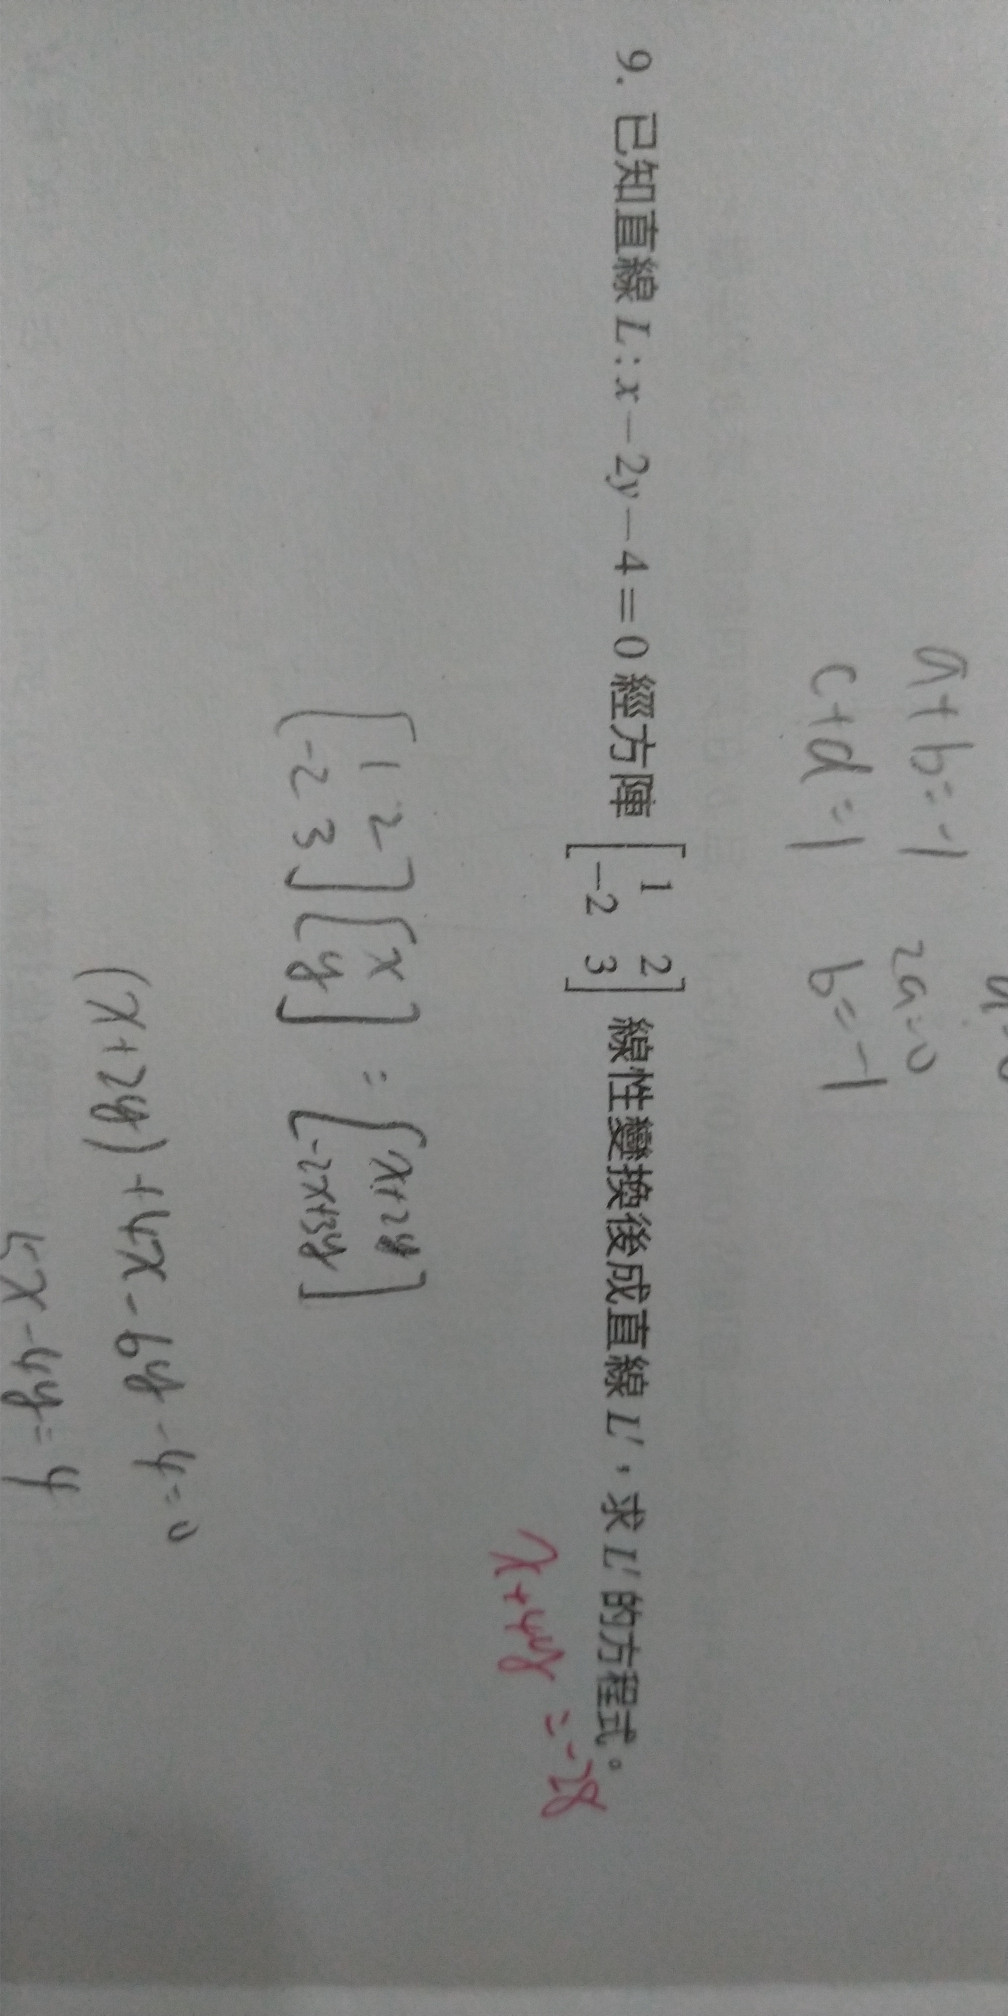 a+b=-1 2a=0
c+d=1 b=-1
9. 已知直線 L:x-2y-4=0 經方陣 [1 2 -2 3] 線性變換後成直線 L',求 L' 的方程式。
x+4y=-28
[1 2 -2 3][x y] = [x+2y -2x+3y]
(x+2y)+4x-6y-4=0
5x-4y=4